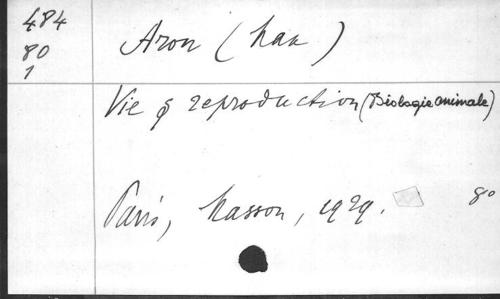 484
80
1
Aron (Max)
Vie & reproduction (Biologie animale)
Paris, Masson, 1929.
8°